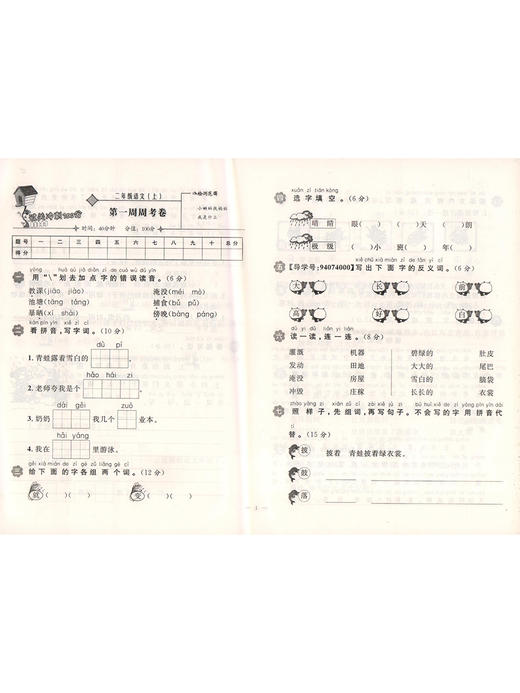 二年级语文(上)
第一周周考卷
时间：40分钟 分值：100分
☆检测范围
小蝌蚪找妈妈
我是什么
题号 一 二 三 四 五 六 七 八 九 十 总分
得分
一 用“\”划去加点字的错误读音。(6分)
教课(jiāo jiào) 淹没(méi mò)
池塘(táng tāng) 捕食(bǔ pǔ)
暴晒(xī shài) 傍晚(bàng páng)
kàn pīn yīn xiě zì cí
二 看拼音,写字词。(10分)
dù pí
1. 青蛙露着雪白的
hǎo hái zi
2. 老师夸我是个 。
dài gěi zuò
3. 奶奶 我几个 业本。
hǎi yáng
4. 我在 里游泳。
gěi xià miàn de zì gè zǔ liǎng gè cí
三 给下面的字各组两个词。(12分)
就 ( ) ( ) 变 ( ) ( )
xuǎn zì tián kòng
四 选字填空。(6分)
睛 晴 眼( ) ( )天 ( )朗
极 级 ( )小 班( ) 年( )
五 【导学号:94074000】写出下面字的反义词。(6分)
大 长 前
高 好 白
dú yi dú lián yi lián
六 读一读,连一连。(8分)
灌溉 机器 碧绿的 肚皮
发动 田地 大大的 尾巴
淹没 房屋 雪白的 脑袋
冲毁 庄稼 长长的 衣裳
七 照样子,先组词,再写句子。不会写的字用拼音代
替。(15分)
披 披着 青蛙披着绿衣裳。
鼓
落
1